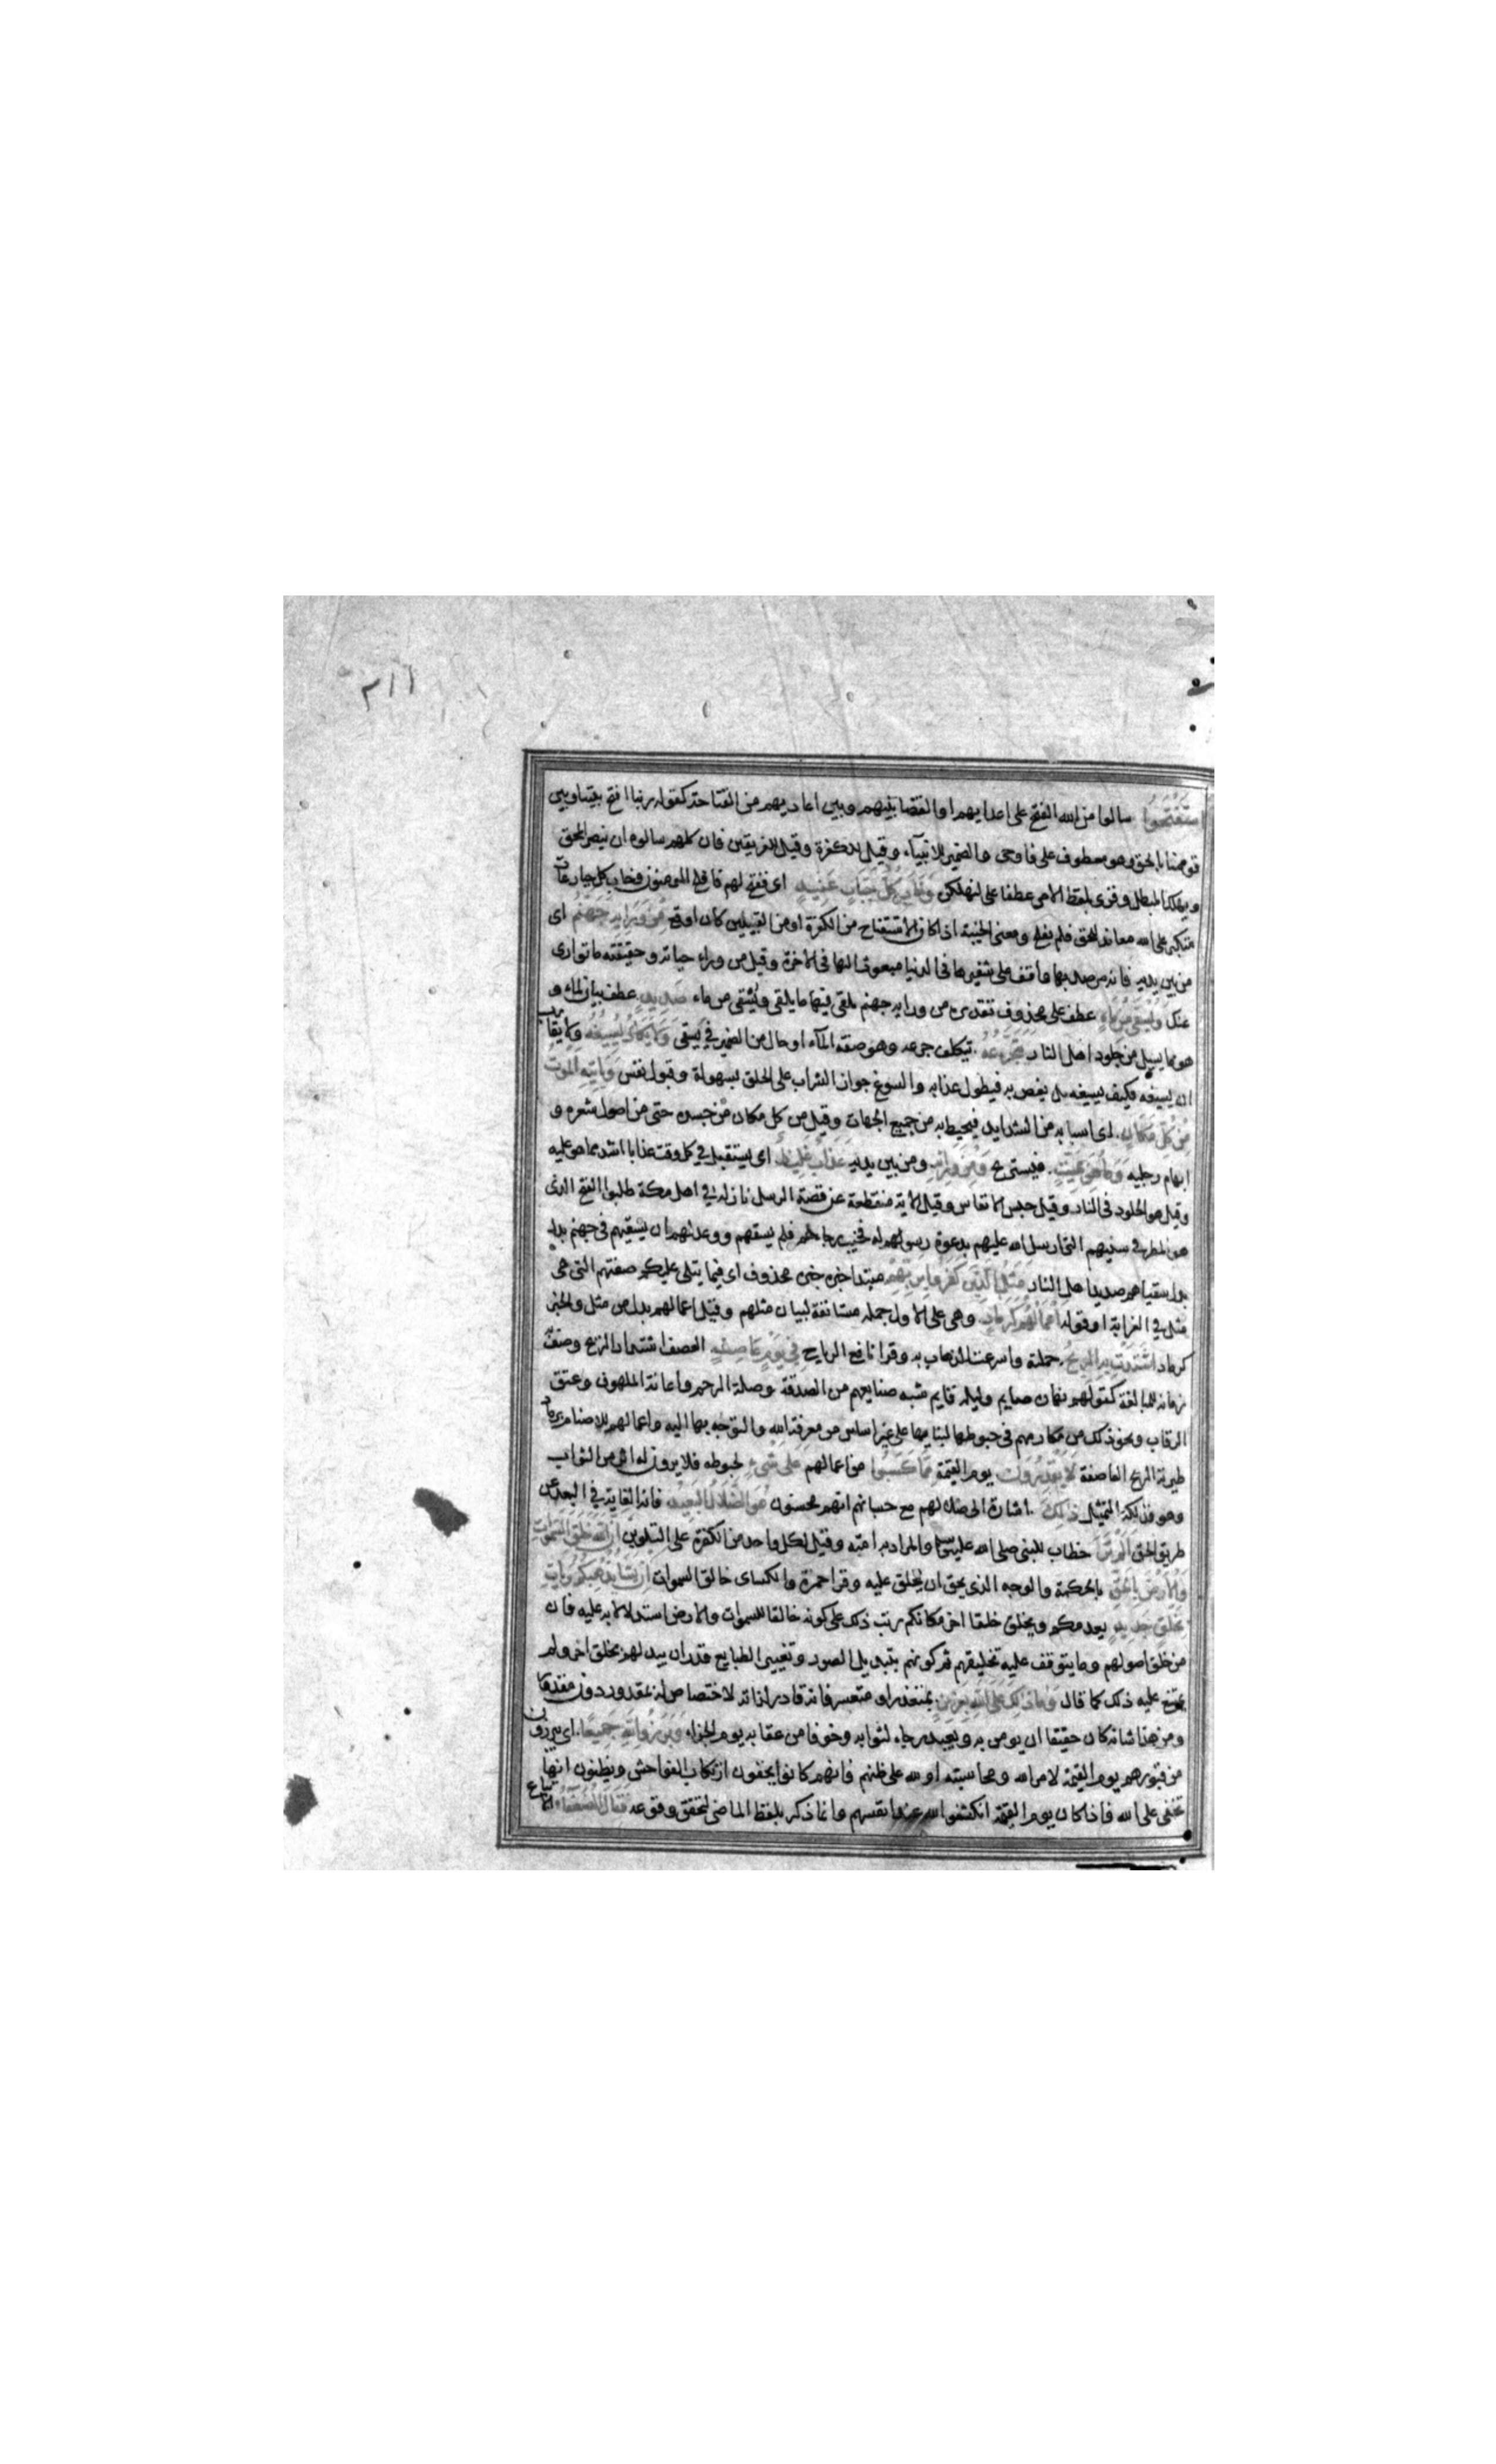 ٢١١
استفتحوا سالوا من الله الفتح على اعدايهم او القضا بينهم وبين اعاديهم من الفتاحة كقوله ربنا افتح بيننا وبين
قومنا بالحق وهو معطوف على فاوحى والضمير للانبيآء وقيل للكفرة وقيل للفريقين فان كلهم سالوه ان ينصر المحق
ويهلك المبطل وقرى بلفظ الامر عطفا على لنهلكن وخاب كل جبار عنيد اى ففتح لهم فافلح المومنون وخاب كل جبار عات
متكبر على الله معاند للحق فلم يفلح ومعنى الخيبة اذا كان الاستفتاح من الكفرة او من القبيلين كان اوقع من ورايه جهنم اى
من بين يديه فانه مرصد بها واقف على شفيرها فى الدنيا مبعوث اليها فى الاخرة وقيل من وراء حياته وحقيقته ما توارى
عنك ويسقى من ماء عطف على محذوف تقديره من ورايه جهنم يلقى فيها ما يلقى ويسقى من ماء صديد عطف بيان لماء و
هو ما يسيل من جلود اهل النار يتجرعه يتكلف جرعه وهو صفة المآء او حال من الضمير في يسقى ولا يكاد يسيغه ولا يقارب
ان يسيغه فكيف يسيغه بل يغص به فيطول عذابه والسوغ جواز الشراب على الحلق بسهولة وقبول نفس وياتيه الموت
من كل مكان اى اسبابه من الشدايد فيحيط به من جميع الجهات وقيل من كل مكان من جسده حتى من اصول شعره و
ابهام رجليه وما هو بميت فيستريح ومن ورائه ومن بين يديه عذاب غليظ اى يستقبل في كل وقت عذابا اشد مما هو عليه
وقيل هو الخلود فى النار وقيل حبس الانفاس وقيل الاية منقطعة عن قصة الرسل نازلة في اهل مكة طلبوا الفتح الذى
هو المطر في سنيهم التى ارسل الله عليهم بدعوة رسولهم له فخيب رجاءهم فلم يسقهم ووعد لهم ان يسقيهم فى جهنم بدل
بدل سقياهم صديد اهل النار مثل الذين كفروا بربهم مبتدا خبره محذوف اى فيما يتلى عليكم صفتهم التى هى
مثل في الغرابة او قوله اعمالهم كرماد وهى على الاول جملة مستانفة لبيان مثلهم وقيل اعمالهم بدل من مثل والخبر
كرماد اشتدت به الريح حملته واسرعت الذهاب به وقرا نافع الرياح في يوم عاصف العصف اشتداد الريح وصف به
زمانه للمبالغة كقولهم نهاره صايم وليله قايم شبه صنايعهم من الصدقة وصلة الرحم واعانة الملهوف وعتق
الرقاب ونحو ذلك من مكارمهم فى حبوطها لبنايها على غير اساس من معرفة الله والتوجه بها اليه واعمالهم للاصنام برماد
طيرته الريح العاصفة لا يقدرون يوم القيمة مما كسبوا من اعمالهم على شىء لحبوطه فلا يرون له اثر من الثواب
وهو فذلكة التمثيل ذلك اشارة الى ضلالهم مع حسبانهم انهم محسنون هو الضلال البعيد فانه الغاية في البعد عن
طريق الحق الم تر خطاب للنبى صلى الله عليه وسلم والمراد به امته وقيل لكل واحد من الكفرة على التلوين ان الله خلق السموات
والارض بالحق بالحكمة والوجه الذى يحق ان يخلق عليه وقرا حمزة والكساى خالق السموات ان يشا يذهبكم ويات
بخلق جديد يعدمكم ويخلق خلقا اخر مكانكم رتب ذلك على كونه خالقا للسموات والارض استدلالا به عليه فان
من خلق اصولهم وما يتوقف عليه تخليقهم ثم كونهم بتبديل الصور وتغيير الطبايع قدر ان يبدلهم بخلق اخر ولم
يمتنع عليه ذلك كما قال وما ذلك على الله بعزيز بمتعذر او متعسر فانه قادر لذاته لا اختصاص له بمقدور دون مقدور
ومن هذا شانه كان حقيقا ان يومن به ويعبد رجاء لثوابه وخوفا من عقابه يوم الجزاء وبرزوا لله جميعا اى يبرزون
من قبورهم يوم القيمة لامر الله ومحاسبته او لله على ظنهم فانهم كانوا يخفون ارتكاب الفواحش ويظنون انها
تخفى على الله فاذا كان يوم القيمة انكشفوا لله عند انفسهم وانما ذكر بلفظ الماضى لتحقق وقوعه فقال الضعفاء